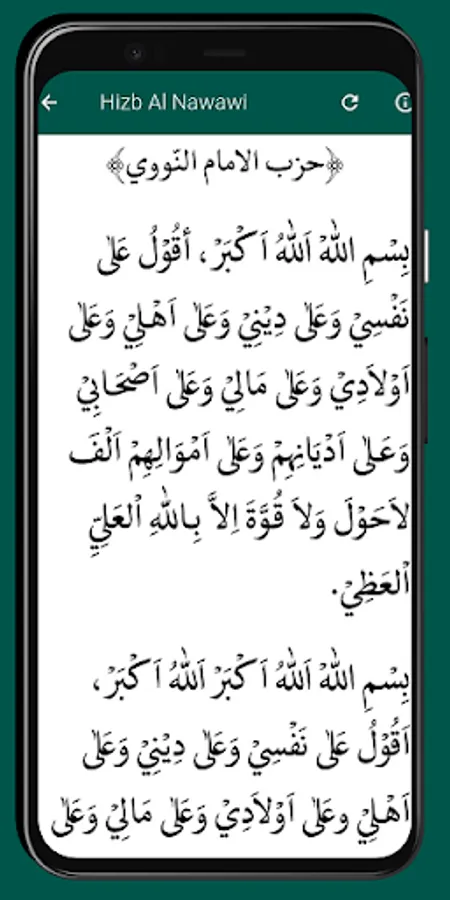 Hizb Al Nawawi
﴿حزب الامام النّووي﴾
بِسْمِ اللهْ اَللهُ اَكْبَرْ، أَقُوْلُ عَلٰى
نَفْسِيْ وَعَلٰى دِيْنِيْ وَعَلٰى اَهْلِيْ وَعَلٰى
اَوْلاَدِيْ وَعَلٰى مَالِيْ وَعَلٰى اَصْحَابِيْ
وَعَلٰى اَدْيَانِهِمْ وَعَلٰى اَمْوَالِهِمْ اَلْفَ
لاَحَوْلَ وَلاَ قُوَّةَ اِلاَّ بِاللهِ اْلعَلِيِّ
اْلعَظِيْ.
بِسْمِ اللهْ اَللهُ اَكْبَرْ اَللهُ اَكْبَرْ،
اَقُوْلُ عَلٰى نَفْسِيْ وَعَلٰى دِيْنِيْ وَعَلٰى
اَهْلِيْ وعَلٰى اَوْلاَدِيْ وَعَلٰى مَالِيْ وَعَلٰى